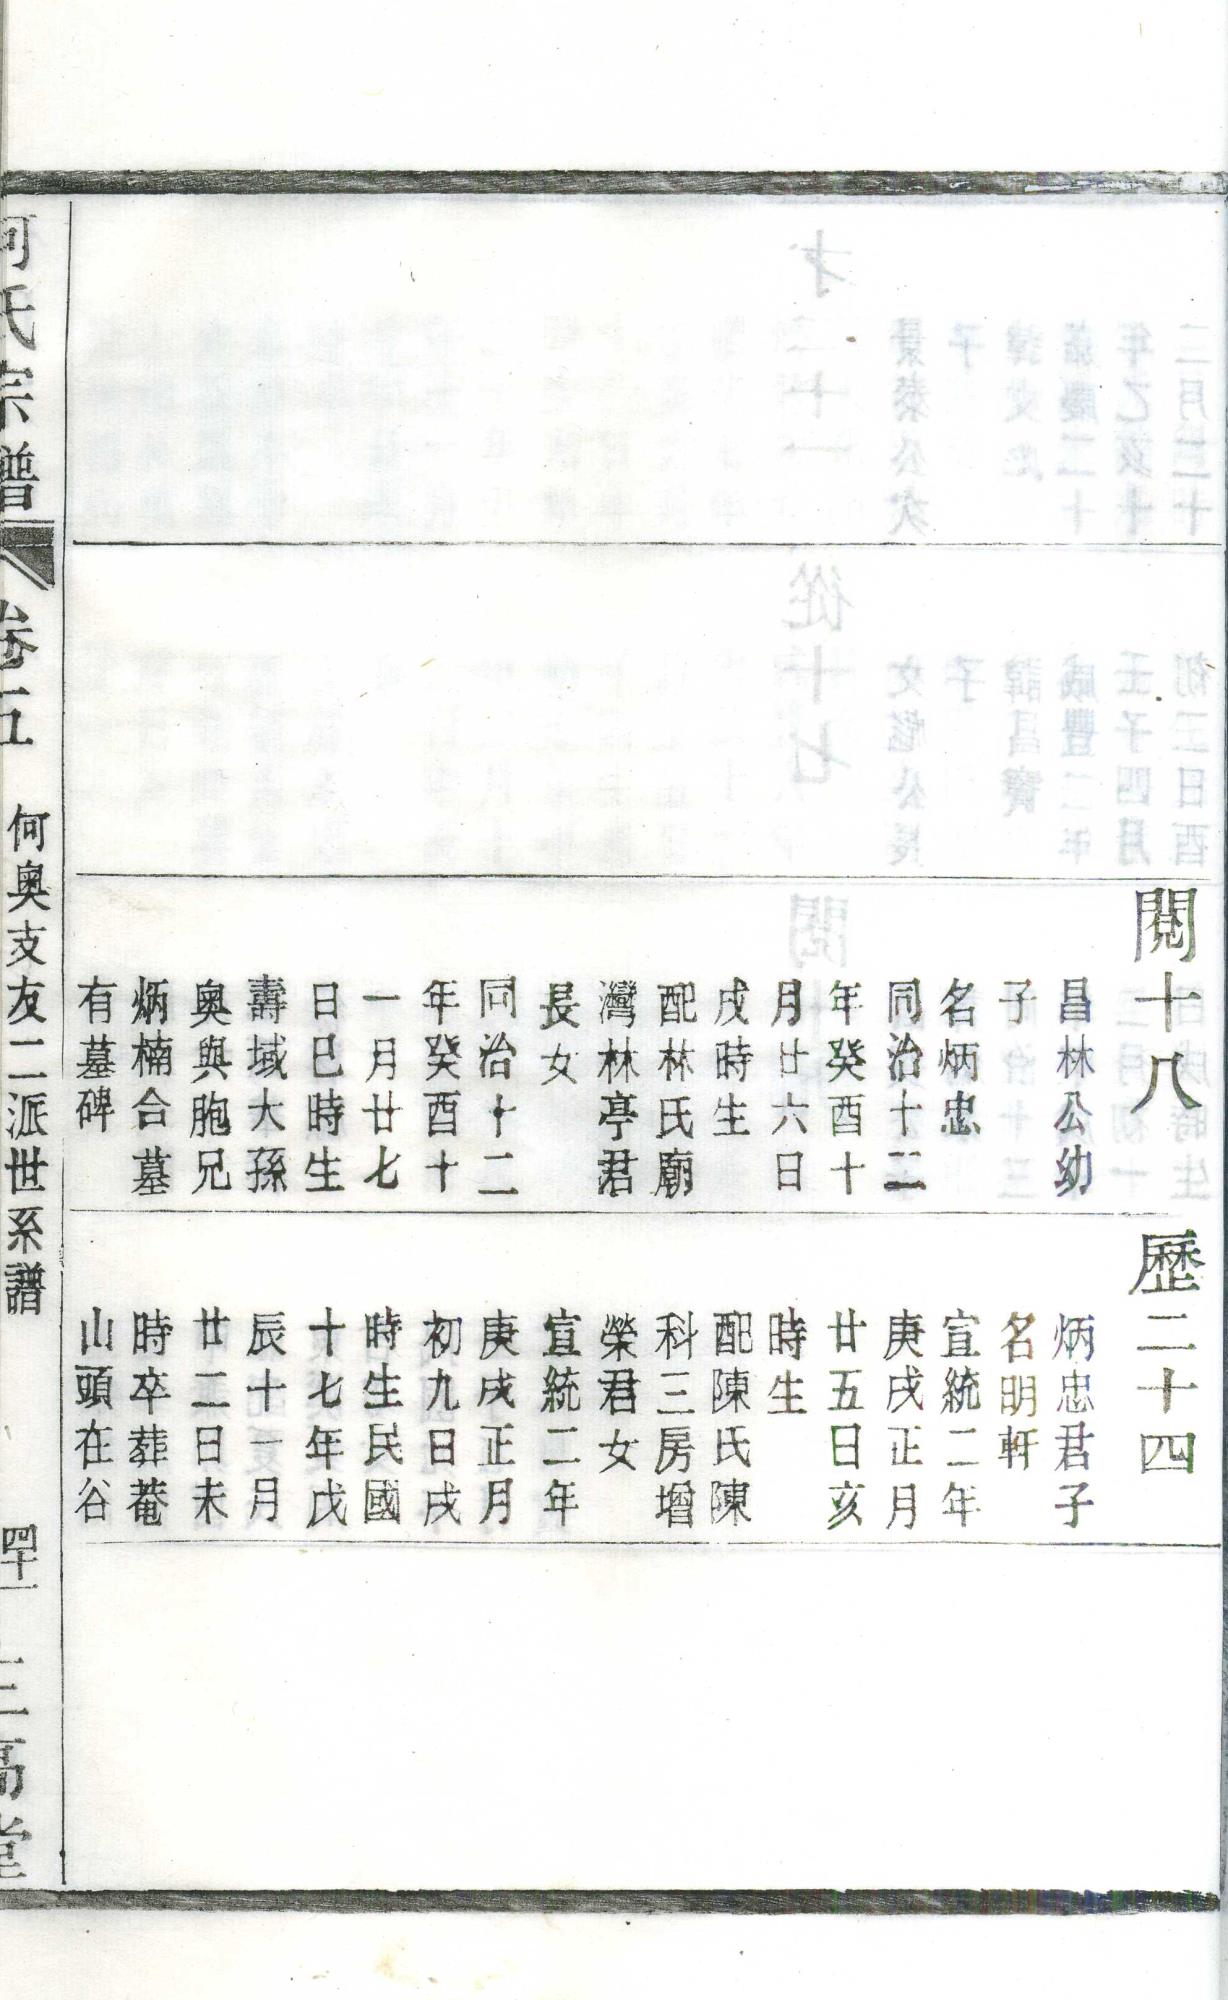 閱十八
昌林公幼
子
名炳忠
同治十二
年癸酉十
月廿六日
戌時生
配林氏廟
灣林亭君
長女
同治十二
年癸酉十
一月廿七
日巳時生
壽域大孫
奧與胞兄
炳楠合墓
有墓碑
歷二十四
炳忠君子
名明軒
宣統二年
庚戌正月
廿五日亥
時生
配陳氏陳
科三房增
榮君女
宣統二年
庚戌正月
初九日戌
時生民國
十七年戊
辰十一月
廿二日未
時卒葬菴
山頭在谷
何氏宗譜
卷五
何奧支友二派世系譜
四十一
三高堂